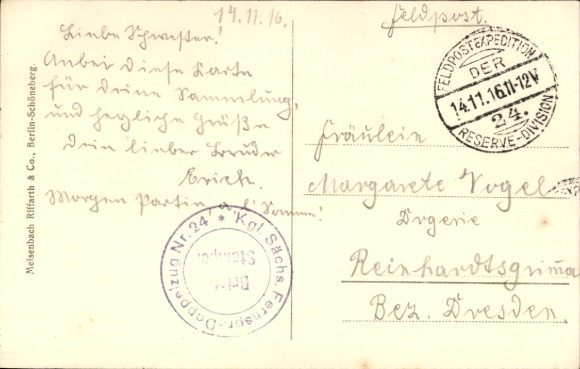 14.11.16.
Liebe Schwester!
Anbei diese Karte
für deine Sammlung,
und herzliche Grüße
dein lieber Bruder
Erich.
Morgen Partie a. d. Somme!
Meisenbach Riffarth & Co., Berlin-Schöneberg.
Kgl. Sächs. Fernspr.-Doppelzug Nr. 24 *
Brief
Stempel
Feldpost.
FELDPOSTEXPEDITION
DER
14.11.16.11-12V
24.
RESERVE-DIVISION
Fräulein
Margarete Vogel
Drgerie
Reinhardtsgrimma
Bez. Dresden.